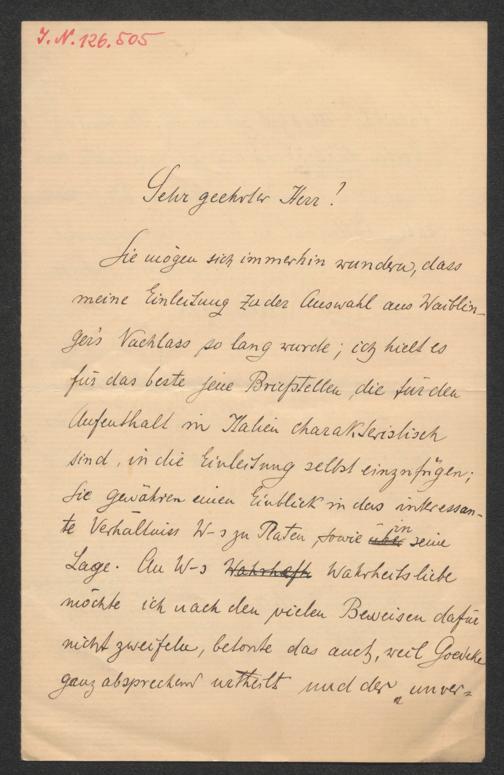 J.N. 126.505
Sehr geehrter Herr!
Sie mögen sich immerhin wundern, dass
meine Einleitung zu der Auswahl aus Waiblin-
ger's Nachlass so lang wurde; ich hielt es
für das beste jene Briefstellen, die für den
Aufenthalt in Italien charakteristisch
sind, in die Einleitung selbst einzufügen;
sie gewähren einen Einblick in das interessan-
te Verhältniss W-s zu Platen, sowie über in seine
Lage. An W-s Wahrhaft Wahrheitsliebe
möchte ich nach den vielen Beweisen dafür
nicht zweifeln, betonte das auch, weil Goedeke
ganz absprechend urtheilt und der „unver-